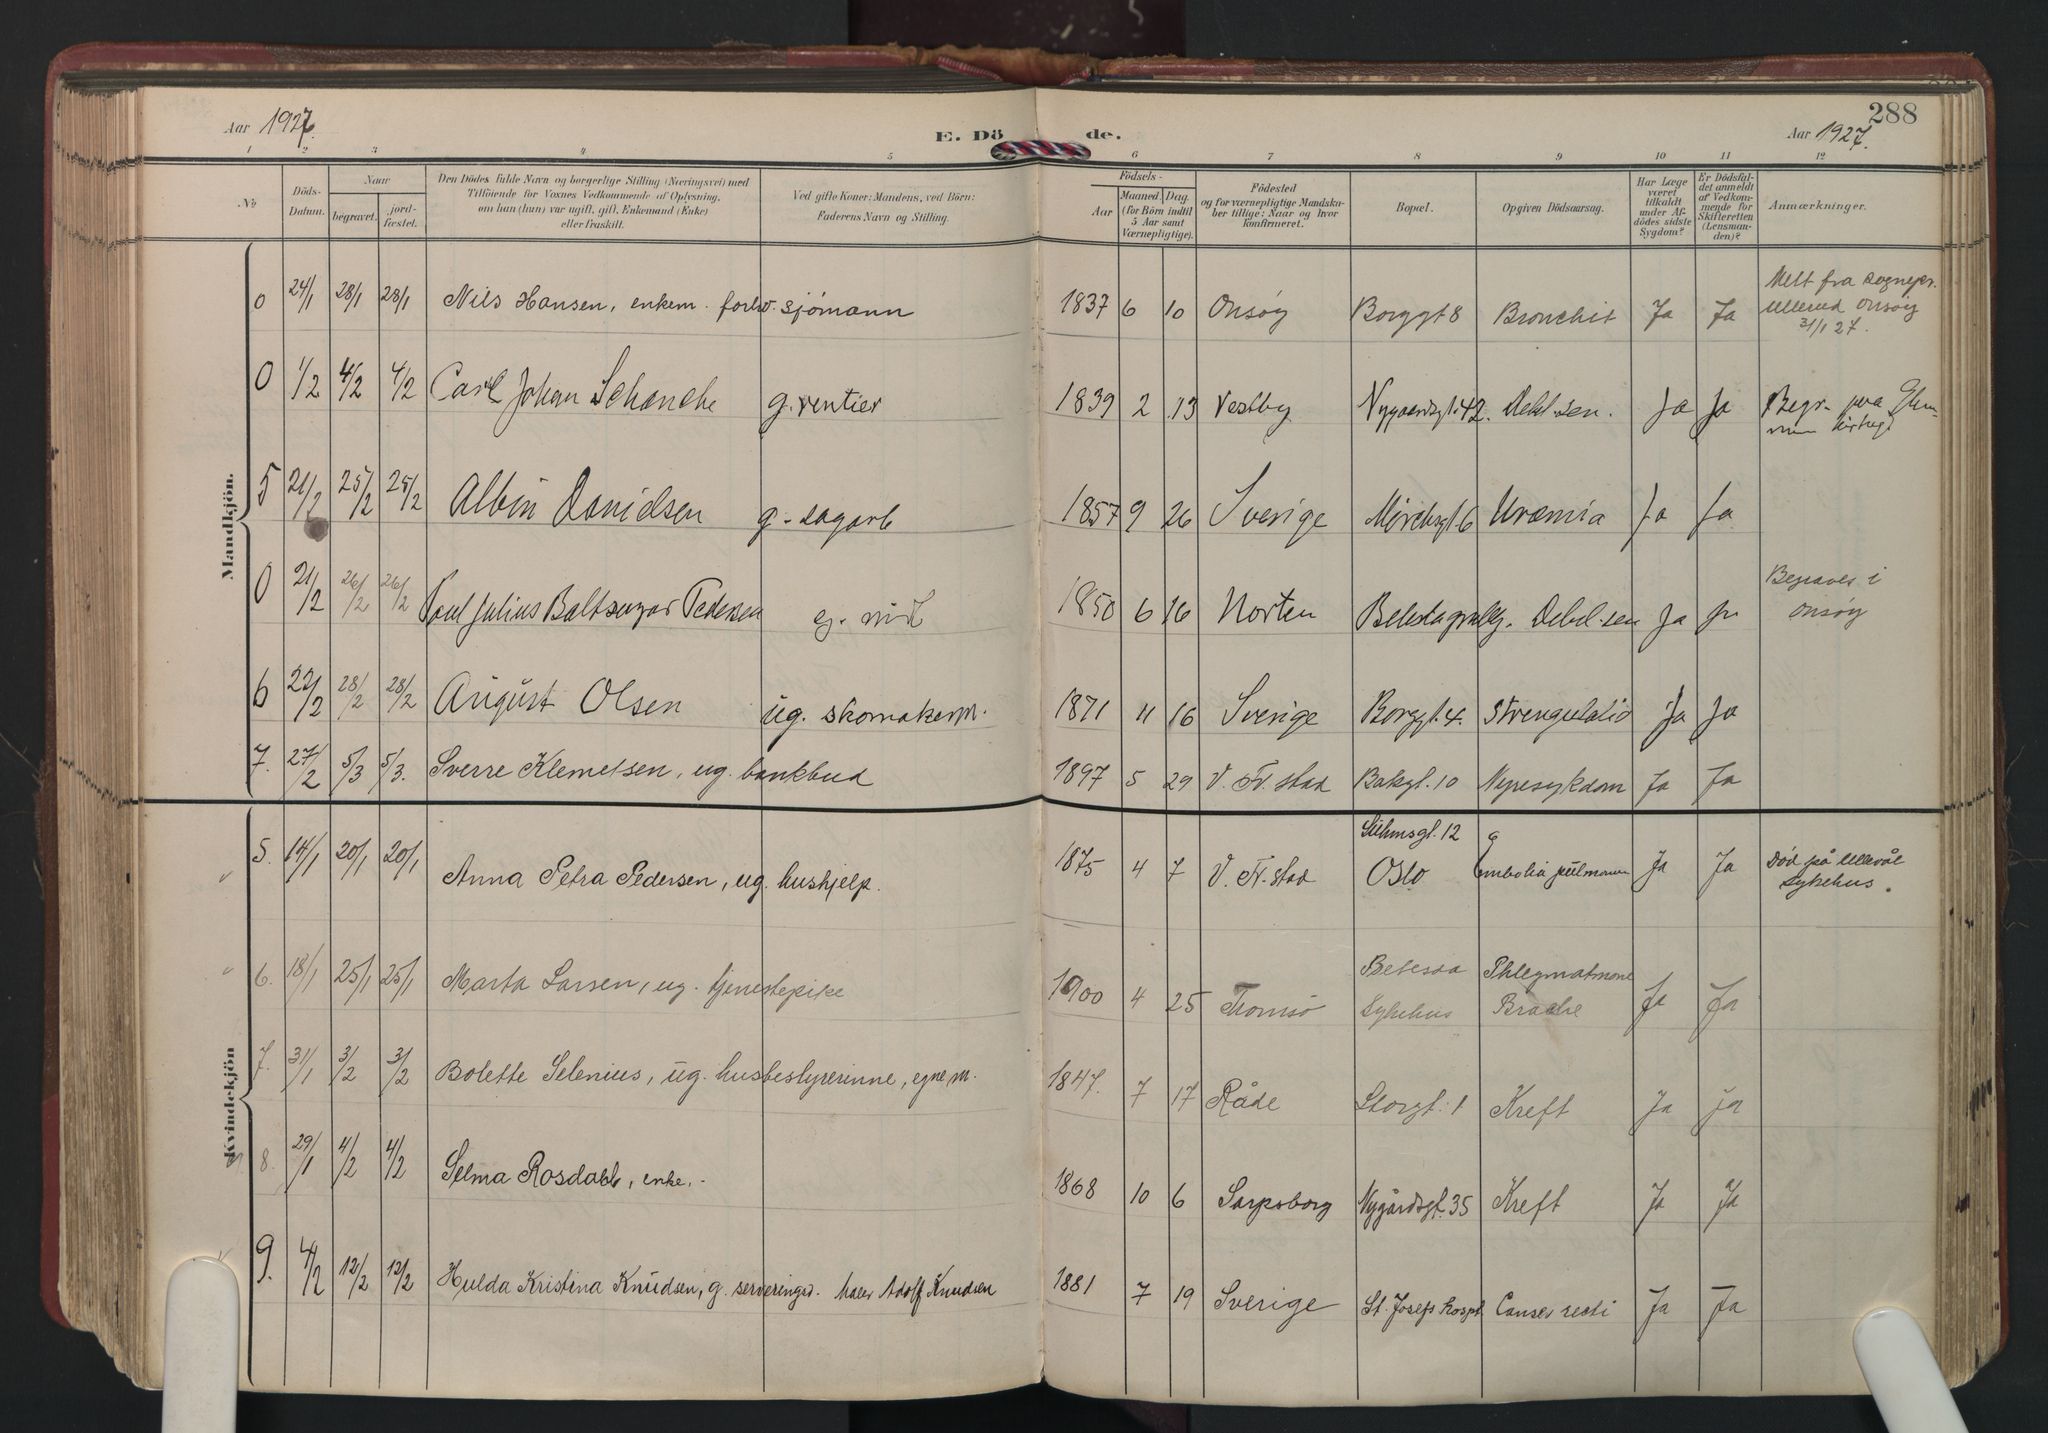 288
Aar 1927. E. Dö de. Aar 1927.
1 2 3 4 5 6 7 8 9 10 11 12
No
Döds-Datum.
Naar
begravet.
jord-fæstet.
Den Dödes fulde Navn og borgerlige Stilling (Næringsvei) med
Tilföiende for Voxnes Vedkommende af Oplysning,
om han (hun) var ugift, gift, Enkemand (Enke)
eller fraskilt.
Ved gifte Koner: Mandens, ved Börn:
Faderens Navn og Stilling.
Födsels-
Aar
Maaned. Dag.
(for Börn indtil
5 Aar samt
Værnepligtige).
Födested
og for værnepligtige Mandsku-
ber tillige: Naar og hvor
Konfirmeret.
Bopæl.
Opgiven Dödsaarsag.
Har Læge
været
tilkaldt
under Af-
dödes sidste
Sygdom?
Er Dödsfal-
det anmeldt
af Vedkom-
mende for
Skifteretten
(Lensman-
den)?
Anmærkninger.
Mandkjön.
0 24/1 28/1 28/1 Nils Hansen, enkem. forhv. sjömann 1837 6 10 Onsøy Borggt 8 Bronchit Ja Ja Melt fra Sognepr.
Ullerud Onsøy
31/1 27.
0 1/2 4/2 4/2 Carl Johan Schanche g. rentier 1839 2 13 Vestby Nygaardsgt. 42. Debil. sen. Ja Ja Begr. paa Glem-
men kirkeg
5 21/2 25/2 25/2 Albin Danielsen g. sagarb 1857 9 26 Sverige 6 Uræmia Ja Ja
0 21/2 26/2 26/2 Poul Julius Baltsazar Pedersen 1850 6 16 Horten Debil. sen Ja Ja Begraves i
Onsøy
6 22/2 28/2 28/2 August Olsen ug. skomakerm. 1871 4 16 Sverige Borggt. 4. Strengulatio Ja Ja
7. 27/2 5/3 5/3. Sverre Klemetsen, ug. bankbud 1897 5 29 V. Fr. stad Bakgt. 10 Nyresykdom Ja Ja
Kvindekjön
5. 14/1 20/1 20/1 Anna Petra Pedersen, ug. hushjelp. 1875 4 7 V. Fr. stad Suhmsgt. 12
Oslo Embolia pulmonum Ja Ja Død på Ullevål
Sykehus.
6. 18/1 25/1 25/1 Marta Larsen, ug. tjenestepike 1900 4 25 Tromsö Betesda
Sykehus Phlegmatmone
Brachie Ja Ja
7. 31/1 3/2 3/2 Bolette Selenius, ug. husbestyrerinne, egne m. 1847. 7 17 Råde Storgt. 1 Kreft Ja Ja
8. 29/1 4/2 4/2 Selma Rosdahl, enke. 1868 10 6 Sarpsborg Nygårdsgt. 35 Kreft Ja Ja
9. 4/2 12/2 12/2 Hulda Kristina Knudsen, g. serveringsd. Maler Adolf Knudsen 1881 7 19 Sverige St. Josefs hospt Canser recti Ja Ja